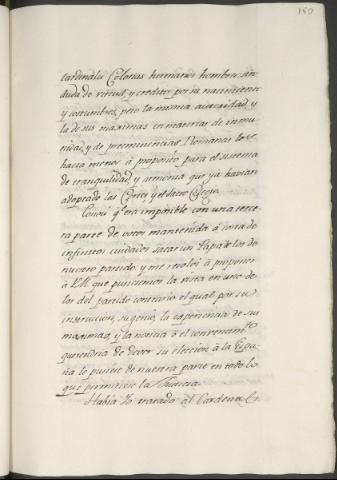 160
Cardenales Colonas hermanos hombres sin
duda de virtud, y credito por su nacimiento
y costumbres, pero la misma austeridad, y
la de sus maximas en materias de inmu-
nidad, y de preeminencias Romanas los
hacia menos à proposito para el sistema
de tranquilidad, y armonia que yà havian
adoptado las Cortes, y el Sacro Colegio.
Conocí qᵉ era imposible con una terce-
ra parte de votos mantenida à costa de
infinitos cuidados sacar un Papa de los de
nuestro partido: y me resolví à proponer
à V.M. que pusiesemos la vista en uno de
los del partido contrario el qual por su
instruccion, su genio, la experiencia de sus
maximas, y la noticia ò el convencimᵗᵒ
que tendria de dever su eleccion à la Espa-
ña lo pusiese de nuestra parte en todo lo
que permitiese la Justicia.
Havia Yo tratado al Cardenal